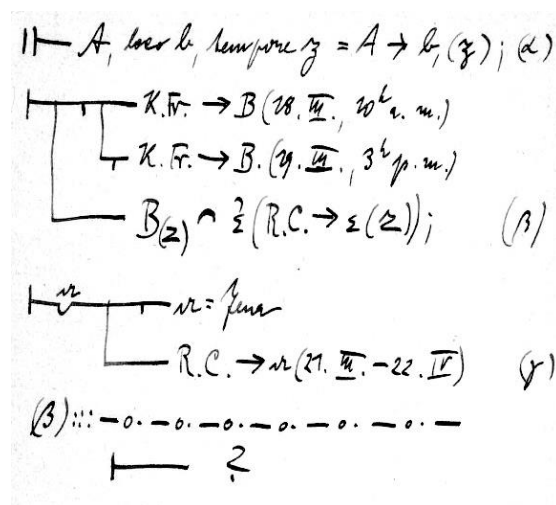 A, loco b, tempore z = A → b, (z); (α)
K. Fr. → B (28. III., 10h a. m.)
K. Fr. → B. (29. III., 3h p. m.)
B(z) ⌢ (R.C. → ε(z)); (β)
= Jena
R.C. → (21. III. – 22. IV) (γ)
(β) :::: — o. — o. — o. — o. — o. — o. —
?